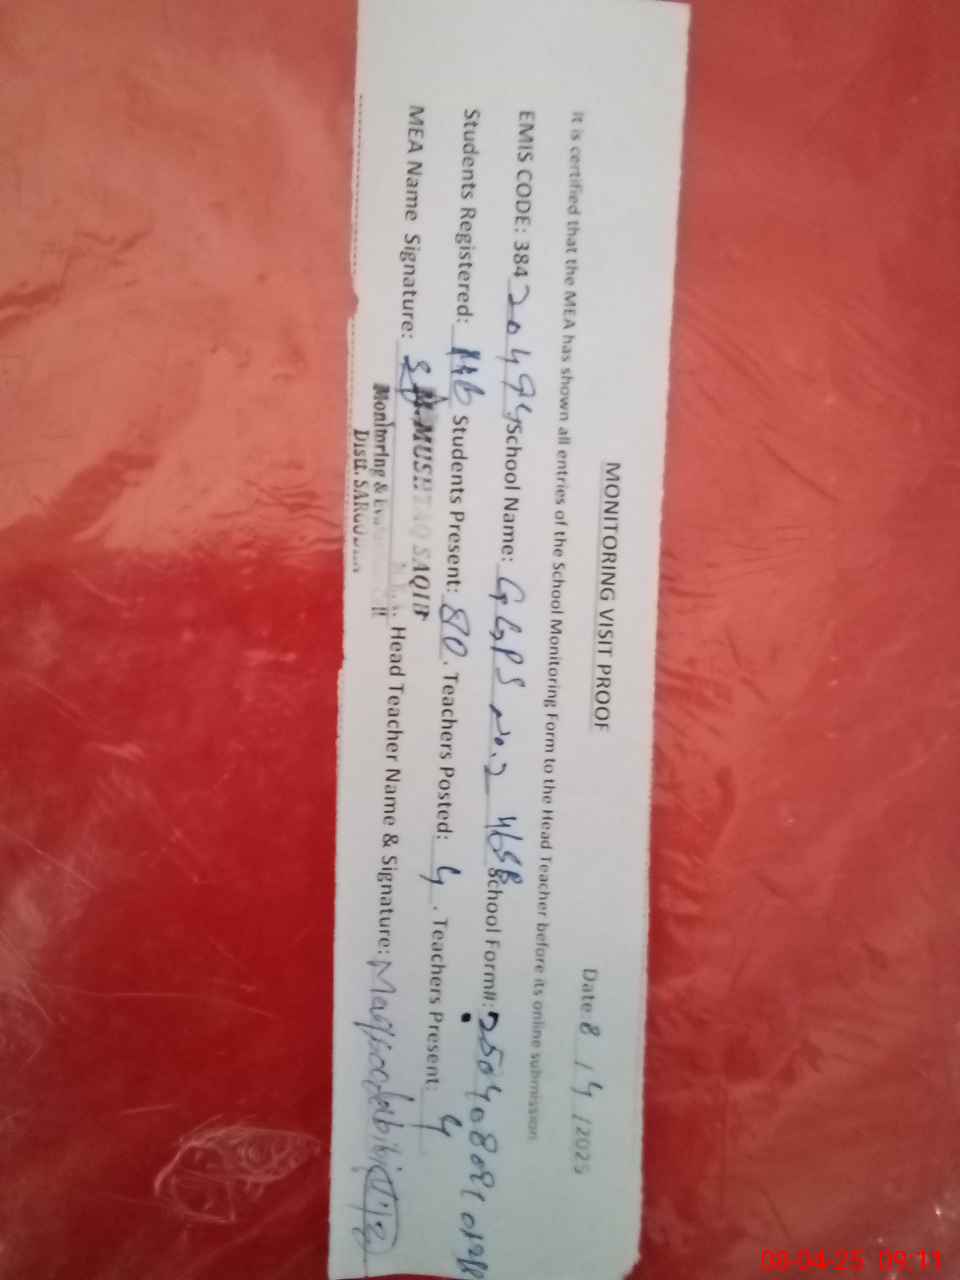 MONITORING VISIT PROOF
Date: 8 / 4 / 2025
It is certified that the MEA has shown all entries of the School Monitoring Form to the Head Teacher before its online submission
EMIS CODE: 384 20494 School Name: GGPS No.2 46SB School Form#:
Students Registered: Students Present: 80. Teachers Posted: 4. Teachers Present: 4
MEA Name Signature: M. MUSHTAQ SAQIB Head Teacher Name & Signature:
Monitoring &
Distt. SARGODHA
08-04-25 09:11